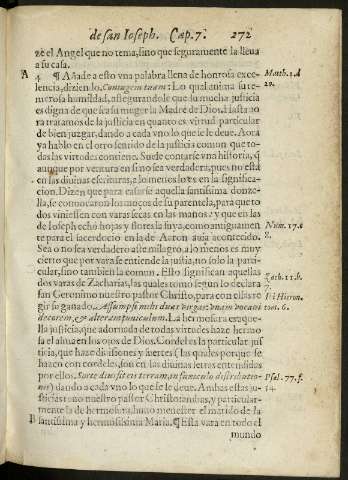 de san Ioseph. Cap. 7. 272
ze el Angel que no tema, sino que seguramente la lleua
a su casa.
A 4. ¶ Añade a esto vna palabra llena de honrosa exce- Math. 1. d
lencia, diziendo. Coniugem tuam: Lo qual anima su te- 20.
merosa humildad, assegurandole que su mucha justicia
es digna de que sea su muger la Madre de Dios. Hasta ao
ra tratamos de la justicia en quanto es virtud particular
de bien juzgar, dando a cada vno lo que se le deue. Aora
ya hablo en el otro sentido de la justicia comun que to-
das las virtudes contiene. Suele contarse vna historia, q̃
aunque por ventura en si no sea verdadera, pues no està
en las diuinas escrituras, a lo menos lo es en la significa-
cion. Dizen que para casarse aquella santissima donze-
lla, se conuocaron los moços de su parentela, para que to
dos viniessen con varas secas en las manos: y que en la
de Ioseph echò hojas y flores la suya, como antiguamen Num. 17. a
te para el sacerdocio en la de Aaron auia acontecido. 8.
Sea o no sea verdadero este milagro, a lo menos es muy
cierto que por vara se entiende la justicia, no solo la parti-
cular, sino tambien la comun. Esto significan aquellas Zach. 11. b.
dos varas de Zacharias, las quales tomò segun lo declara 7.
san Geronimo nuestro pastor Christo, para con ellas re Ibi Hieron.
gir su ganado. Assumpsi mihi duas virgas: vnam vocaui tom. 6.
decorem, & alteram funiculum. La hermosura es aque-
lla justicia, que adornada de todas virtudes haze hermo-
sa el alma en los ojos de Dios. Cordel es la particular jus
ticia, que haze diuisiones y suertes (las quales porque se
hazen con cordeles, son en las diuinas letras entendidas
por ellos. Sorte diuisit eis terram, in funiculo distributio- Psal. 77. f.
nis) dando a cada vno lo que se le deue. Ambas estas ju- 54
sticias tuuo nuestro pastor Christo: ambas, y particular-
mente la de hermosura, huuo menester el marido de la
B santissima y hermosissima Maria. ¶ Esta vara en todo el
mundo